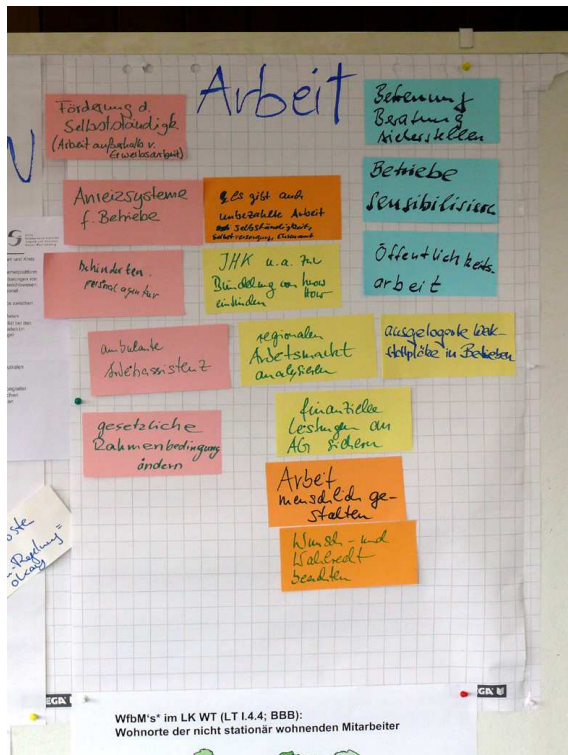 Arbeit
Förderung d.
Selbstständigk
(Arbeit außerhalb v.
Erwerbsarbeit)
Anreizsysteme
f. Betriebe
behinderten-
personalagentur
ambulante
Arbeitsassistenz
gesetzliche
Rahmenbedingung
ändern
Es gibt auch
unbezahlte Arbeit
Selbständigkeit,
Selbstversorgung, Ehrenamt
IHK u.a. zur
Bündelung von know
how
einbinden
regionalen
Arbeitsmarkt
analysieren
finanzielle
Leistungen an
AG sichern
Arbeit
menschlich ge-
stalten
Wunsch- und
Wahlrecht
beachten
Betreuung
Beratung
sicherstellen
Betriebe
sensibilisieren
Öffentlichkeits-
arbeit
ausgelagerte Werk-
stattplätze in Betrieben
-Regelung=
EGA
GA
WfbM's* im LK WT (LT I.4.4; BBB):
Wohnorte der nicht stationär wohnenden Mitarbeiter